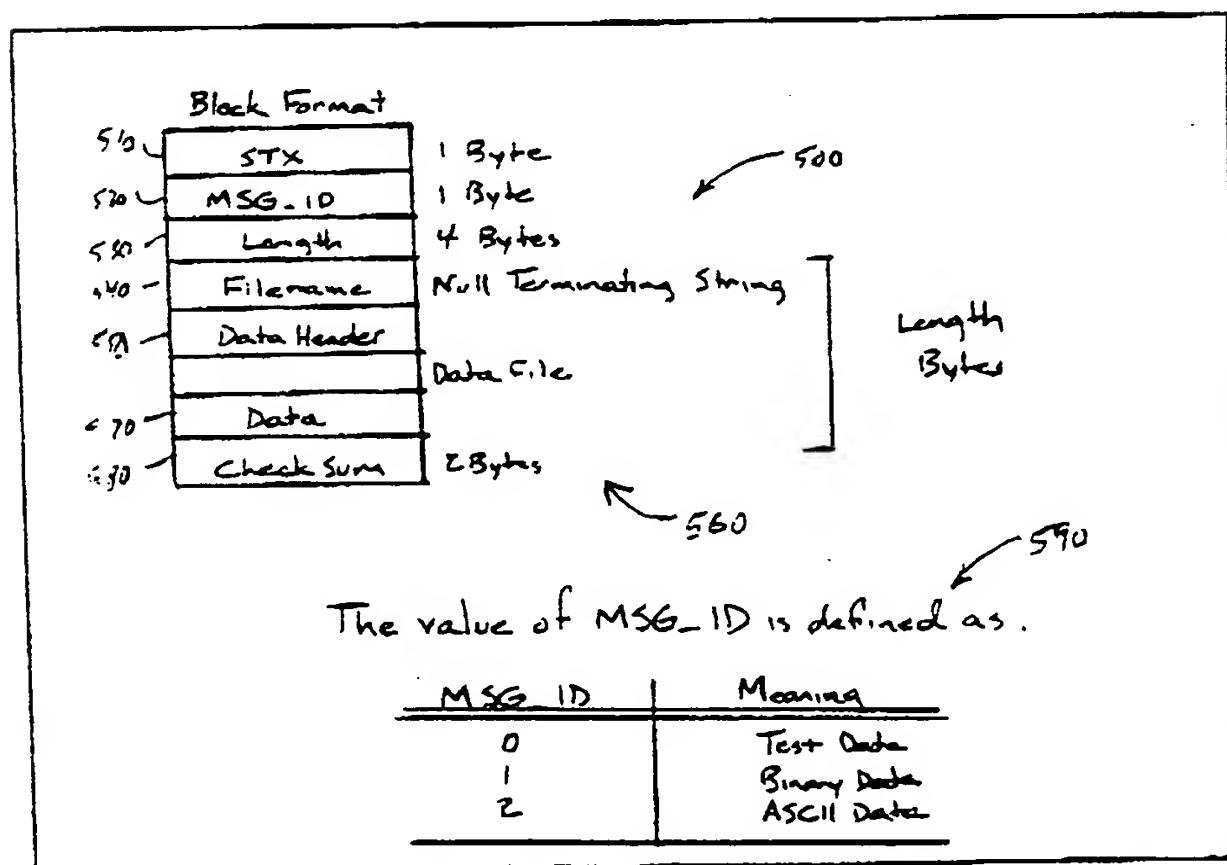 Block Format
510 STX 1 Byte 500
520 MSG_ID 1 Byte
Length 4 Bytes
Filename Null Terminating String
Data Header Length
Bytes
Data File
Data
Check Sum 2 Bytes
560
590
The value of MSG_ID is defined as.
MSG_ID Meaning
0 Test Data
1 Binary Data
2 ASCII Data